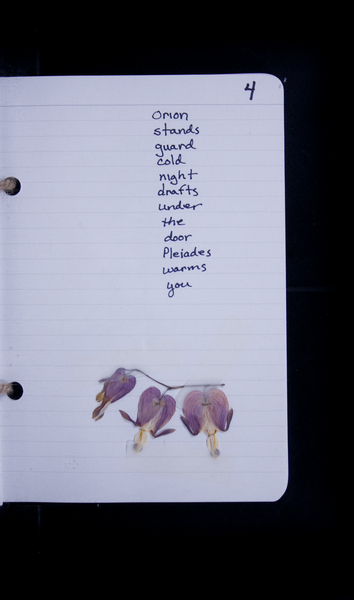 4
Orion
stands
guard
cold
night
drafts
under
the
door
Pleiades
warms
you